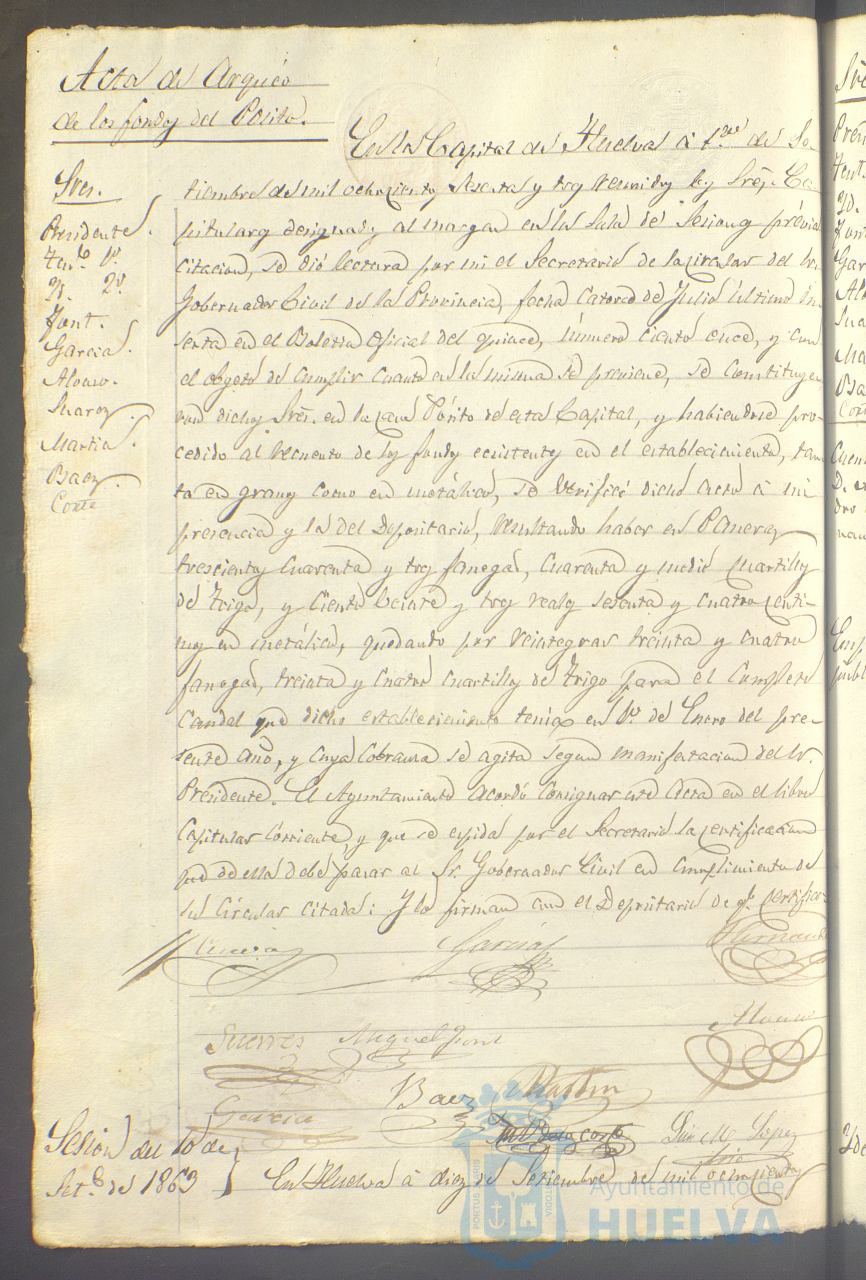 Acta de Arqueo
de los fondos del Pósito.
En la Capital de Huelva á 1º de Se-
Sres.
Presidente.
Ten.e 1º.
Yd. 2º.
Font.
Garcia.
Alonso.
Suarez.
Martin.
Baez.
Conte
tiembre de mil ochocientos sesenta y tres reunidos los Sres. Ca-
pitulares designados al margen en la Sala de Sesiones prévia
citacion, se dió lectura por mi el Secretario de la circular del Sr.
Gobernador Civil de la Provincia, fecha catorce de Julio último in-
serta en el Boletin Oficial del quince, número ciento once, y con
el objeto de cumplir cuanto en la misma se previene, se constituye-
ron dichos Sres. en la Pósito de esta Capital, y habiendose pro-
cedido al recuento de los fondos ecsistentes en el establecimiento, tan-
to en granos como en metálico, se verificó dicho acto á mi
presencia y la del Depositario, resultando haber en Paneras
trescientas cuarenta y tres fanegas, cuarenta y medio cuartillos
de trigo, y ciento veinte y tres reales sesenta y cuatro centi-
mos en metálico, quedando por reintegrar treinta y cuatro
fanegas, treinta y cuatro cuartillos de trigo para el completo
caudal que dicho establecimiento tenia en 1º. de Enero del pre-
sente año, y cuya cobranza se agita segun manifestacion del Sr.
Presidente. El Ayuntamiento acordó consignar este acta en el libro
Capitular corriente, y que se espida por el Secretario la certificacion
que de ella debe pasar al Sr. Gobernador Civil en cumplimiento de
su circular citada: Y lo firman con el Depositario de q.e certifico
Garcia
Hernand
Suarez Miguel Font
Alonso
Baez Martin
Garcia
Luis M. Lopez
Sesion del 10 de
Set.e de 1863 En Huelva á diez de Setiembre de mil ochocientos
PORTUS MARIS
CUSTODIA
Ayuntamiento de
HUELVA